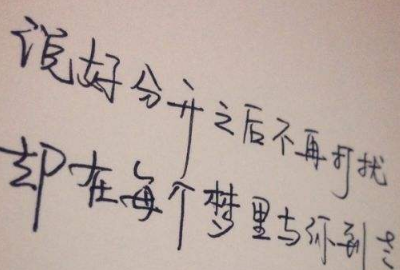 说好分开之后不再打扰
却在每个梦里与你到老